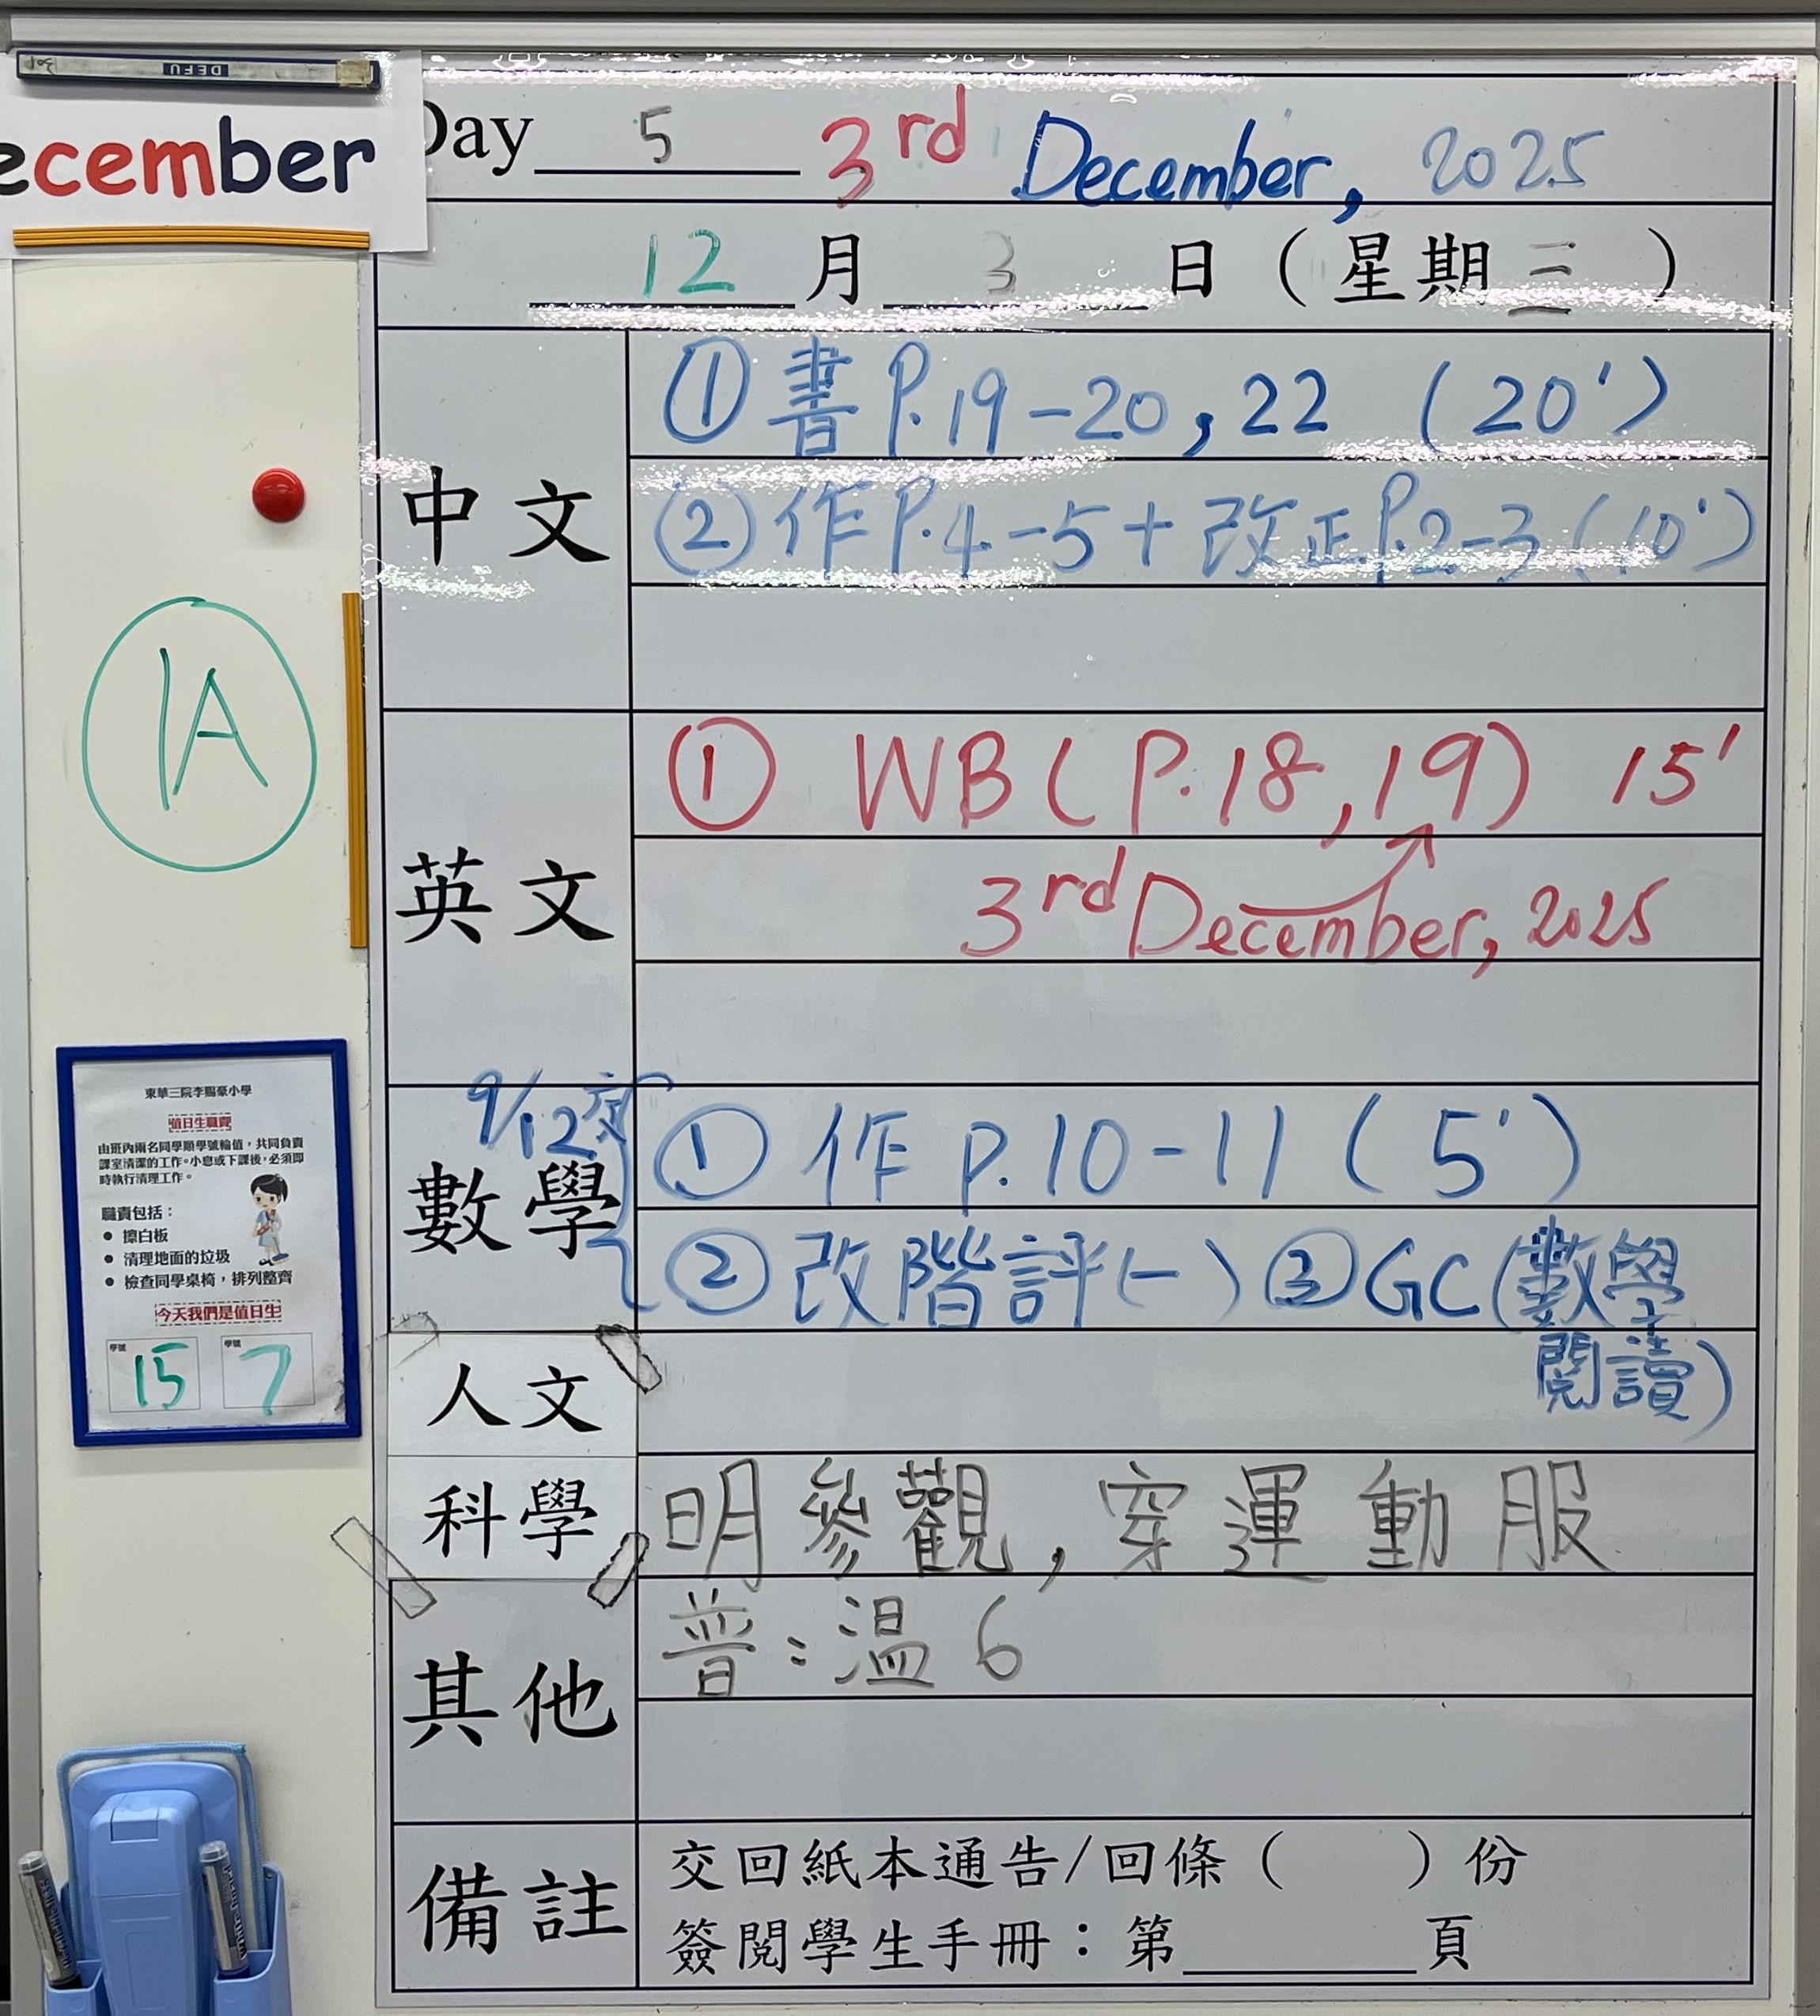 DEFU
ecember
Day 5 3rd December, 2025
12 月 3 日 ( 星期三 )
中文
① 書 P.19-20, 22 (20')
② 作 P.4-5 + 改正 P.2-3 (10')
1A
英文
① WB ( P.18, 19) 15'
3rd December, 2025
數學
9/12交
① 作 p.10-11 ( 5' )
② 改階評(一) ③ GC (數學
閱讀)
人文
科學
明參觀, 穿運動服
其他
普:温6
備註
交回紙本通告/回條( )份
簽閱學生手冊:第 頁
東華三院李賜豪小學
值日生職責
由班內兩名同學順學號輪值,共同負責
課室清潔的工作。小息或下課後,必須即
時執行清理工作。
職責包括:
● 擦白板
● 清理地面的垃圾
● 檢查同學桌椅,排列整齊
今天我們是值日生
學號 學號
15 7